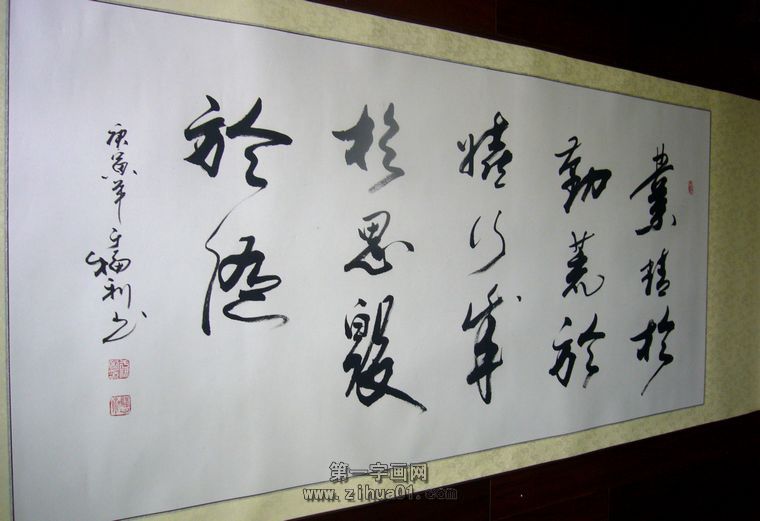 業精於
勤荒於
嬉行成
於思毀
於随
庚寅年
福利书
第一字画网
www.zihua01.com